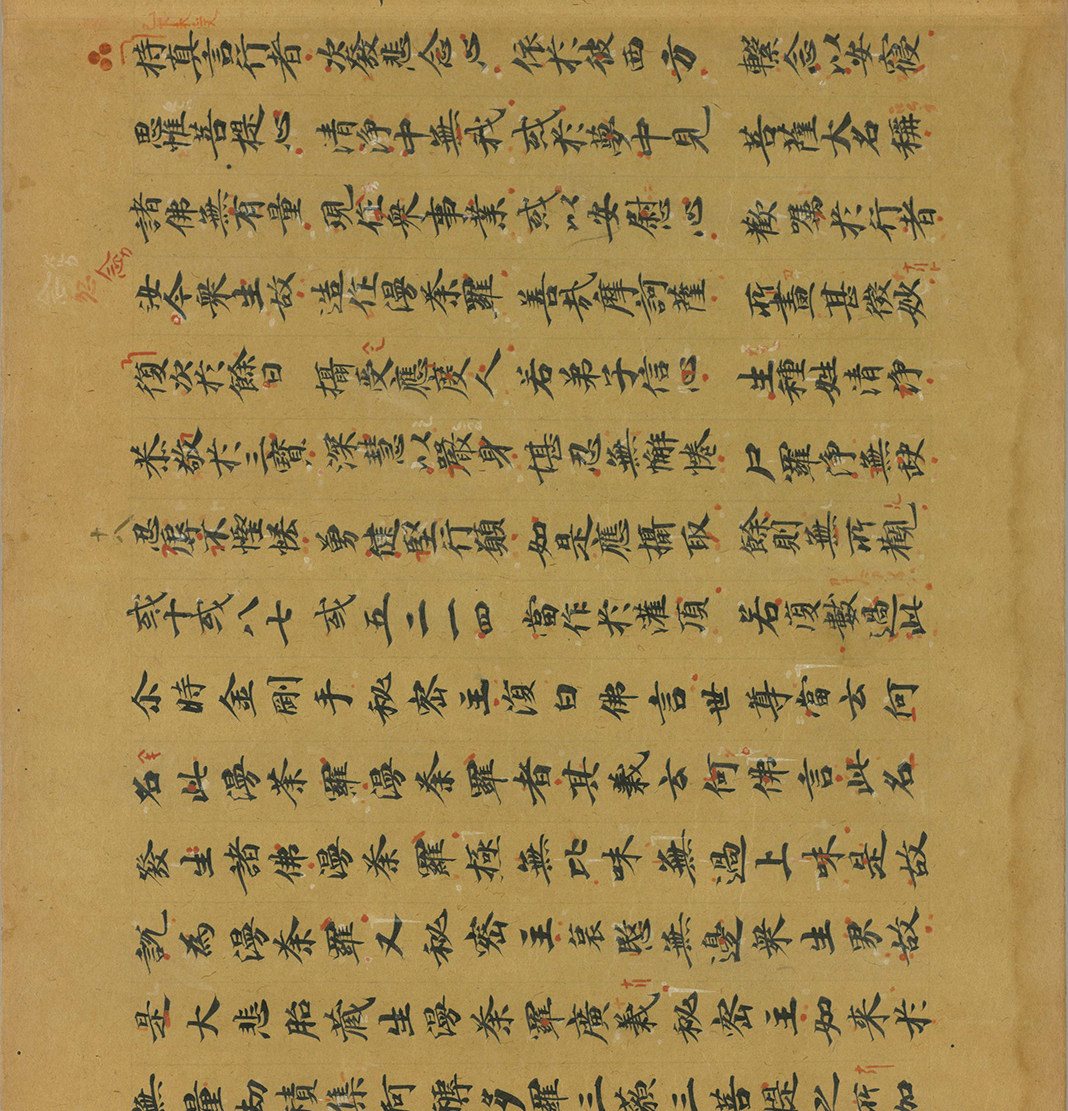 持真言行者 次發悲念心 依於彼西方 繫念以安寢
思惟菩提心 清淨中無我 或於夢中見 菩薩大名稱
諸佛無有量 現作衆事業 或以安慰心 歡囑於行者
汝今衆生故 造作漫荼羅 善哉摩訶薩 所畫甚微妙
復次於餘日 攝受應度人 若弟子信心 生種姓清淨
恭敬於三寶 深慧以嚴身 堪忍無懈惓 尸羅淨無缺
忍辱不慳悋 勇健堅行願 如是應攝取 餘則無所觀
或十或八七 或五二一四 當作於灌頂 若復數過此
尒時金剛手秘密主復白佛言世尊當云何
名此漫荼羅漫荼羅者其義云何佛言此名
發生諸佛漫荼羅極無比味無過上味是故
說為漫荼羅又秘密主哀愍無邊衆生界故
是大悲胎藏生漫荼羅廣義秘密主如来於
無量劫積集阿耨多羅三藐三菩提之所加